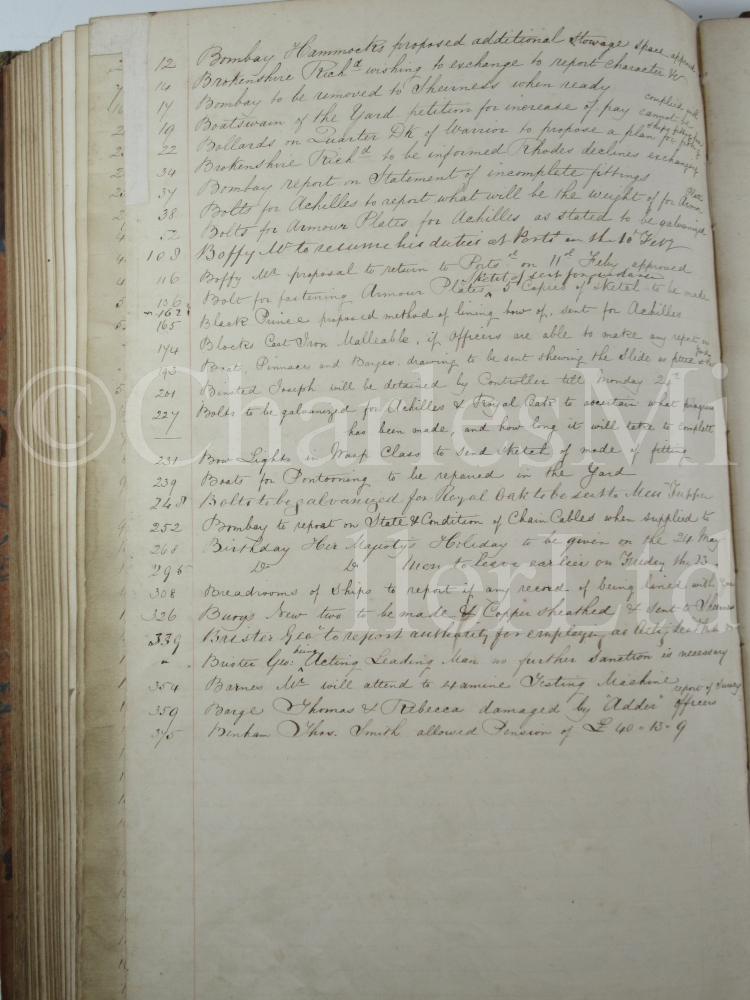 12 Bombay Hammocks proposed additional Stowage space
14 Brokenshire Richd wishing to exchange to report character &c
17 Bombay to be removed to Sheerness when ready
19 Boatswain of the Yard petition for increase of pay cannot be complied with
22 Bollards on Quarter Dk of Warrior to propose a plan for
34 Brokenshire Richd to be informed Rhodes declines exchanging
37 Bombay report on Statement of incomplete fittings
38 Bolts for Achilles to report what will be the weight of for Armr Plates
52 Bolts for Armour Plates for Achilles as stated to be galvanized
108 Boffy Mr to resume his duties at Ports on the 10th Feby
116 Boffy Mr proposal to return to Portsd on 11th Feby approved
136 Bolt for fastening Armour Plates 5 Copies of Sketch to be made
162
165 Black Prince proposed method of lining bow of, sent for Achilles
174 Blocks Cast Iron Malleable, if Officers are able to make any report
193 Boats, Pinnaces and Barges, drawing to be sent shewing the Slide
201 Binsted Joseph will be detained by Controller till Monday 24th
227 Bolts to be galvanized for Achilles & Royal Oak to ascertain what progress
has been made and how long it will take to complete
231 Bow Lights in Wasp Class to send sketch of mode of fitting
239 Boats for Pontooning to be repaired in the Yard
248 Bolts to be galvanized for Royal Oak to be sent to Messrs Tupper
252 Bombay to report on State & Condition of Chain Cables when supplied to
268 Birthday Her Majestys Holiday to be given on the 24 May
295 Do Do Men to leave earlier on Friday the 23
308 Breadrooms of Ships to report if any record of being lined with
326 Buoys New two to be made & Copper sheathed & sent to Sheerness
339 Brister Geo. to report authority for employg as Actg
" Buster Geo: being Acting Leading Man no further Sanction is necessary
354 Barnes Mr will attend to examine Testing Machine
359 Barge Thomas & Rebecca damaged by "Adder" report of Survey officers
375 Benham Thos. Smith allowed Pension of £ 40 - 13 - 9
©CharlesMi
llerLtd